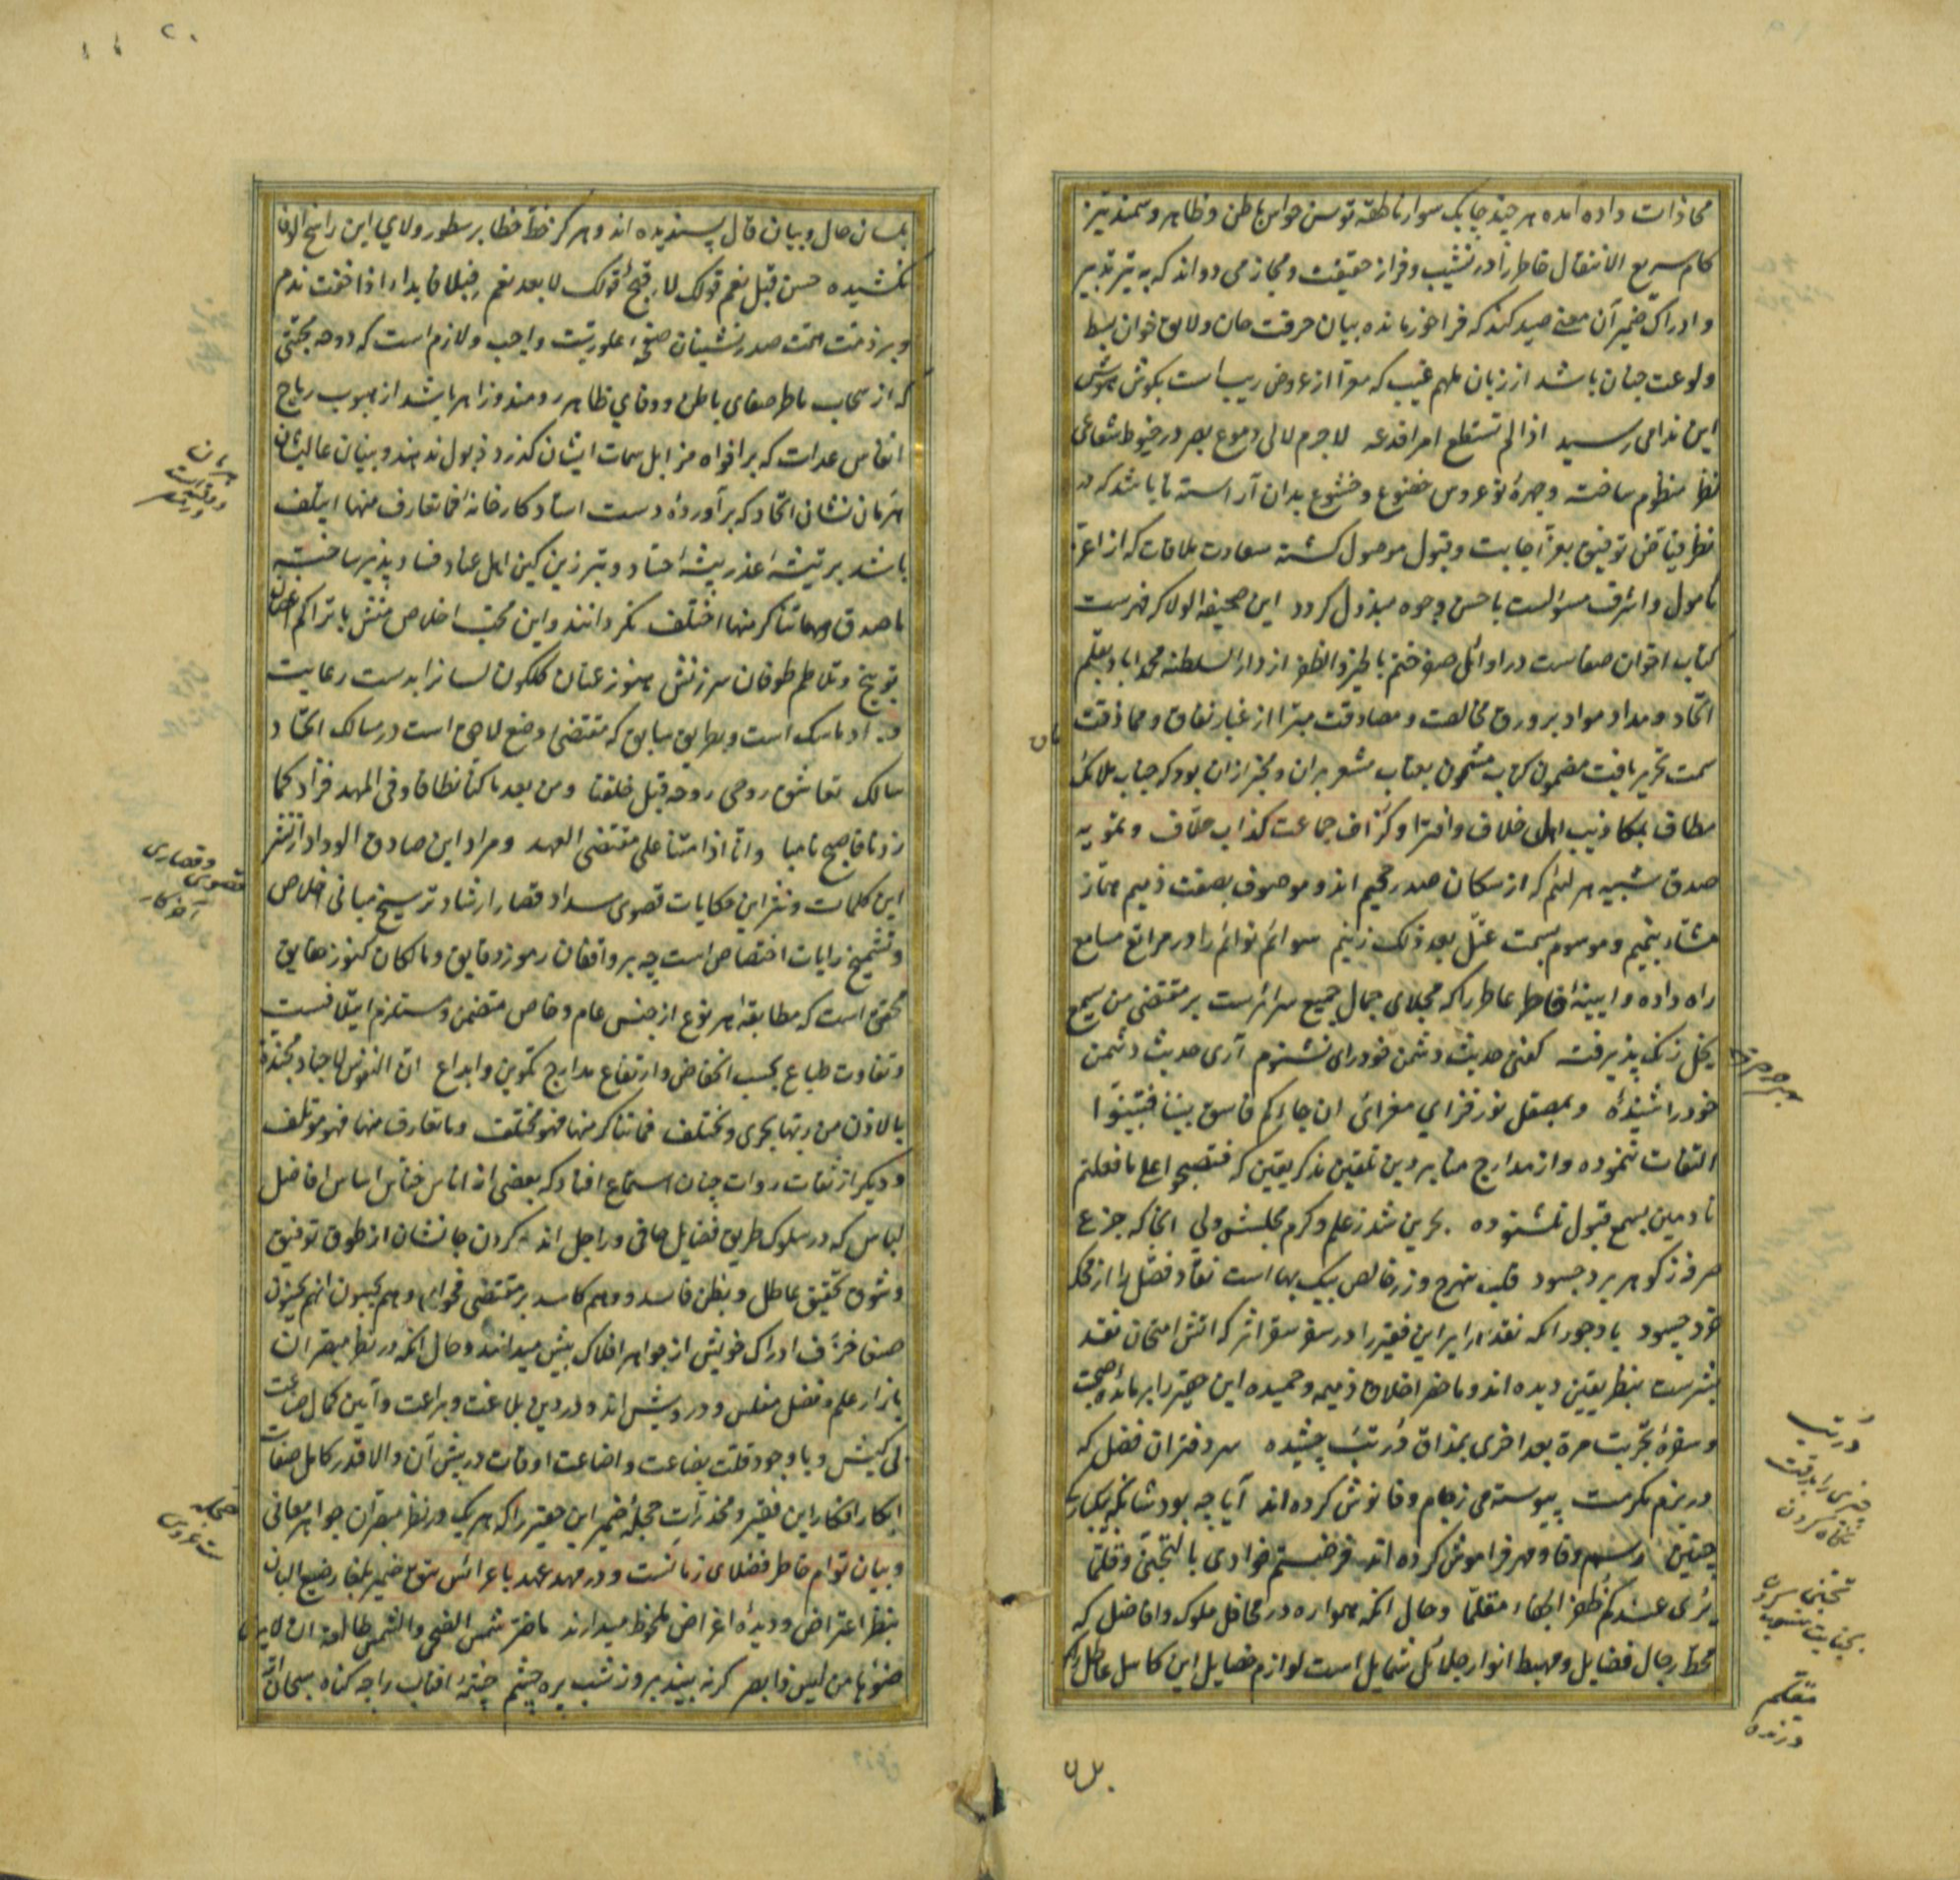 محاذات داده آمده هر چند چابک سوار ناطقه توسن حواس باطن و ظاهر و سمند تیز
کام سریع الانتقال خاطر را در نشیب و فراز حقیقت و مجاز می دواند که به تیر تدبیر
و ادراک ضمیر آن معنی صید کند که فراخور مائده بیان حرقت جان و لایق خوان بسط
ولوعت جنان باشد از زبان ملهم غیب که معرا از عروض ریب است بگوش هوش
این ندا می رسید اذا لم تستطع امرا فدعه لاجرم لالی دموع بصر در خیوط شعاعی
نظر منظوم ساخته و چهرهٔ نوعروس خضوع و خشوع بدان آراسته تا باشد که در
نظر فیاض توفیق بعز اجابت و قبول موصول گشته سعادت ملاقات که از اعز
مامول و اشرف مسؤالست باحسن وجوه مبذول گردد این صحیفه الولا که فهرست
کتاب اخوان صفاست در اوائل صفر ختم بالخیر والظفر از دار السلطنه محمداباد بقلم
اتحاد و مداد مواد بر ورق مخالصت و مصادقت مبرا از غبار نفاق و مماذقت
سمت تحریر یافت مضمون کتاب مشحون بعتاب مشعر بران و مخبر ازان بود که جناب ملائک
مطاف بمکاذیب اهل خلاف و افترا و گزاف جماعت کذاب حلاف و بتمویه
صدق شبیه هر لئیم که از سکان صدر جحیم اند و موصوف بصفت ذمیم هماز
مشاء بنمیم و موسوم بسمت عتل بعد ذلک زنیم سوائم نوائم را در مراتع مسامع
راه داده و آیینه خاطر عاطر را که مجلای جمال جمیع سرائرست بر مقتضی من یسمع
یخل زنگ پذیرفته گفتی حدیث دشمن خود رای نشنوم آری حدیث دشمن
خود را شنیدهٔ و بمصقل نور فزای مغزای ان جاءکم فاسق بنبأ فتبینوا
التفات ننموده و از مدارج منابر دین تلقین مذکر یقین که فتصبحوا علی ما فعلتم
نادمین بسمع قبول نشنوده بحرین شد ز علم و کرم مجلس ولی آنجا که جزع
مرد ز گوهر برد حسود قلب نبهرج و زر خالص بیک بها است نقاد فضل را از محک
خود حسود با وجود آنکه نقد سرایر این فقیر را در سفر سقر اثر که آتش امتحان نقد
بشرست بنظر یقین دیده اند و ماحضر اخلاق ذمیمه و حمیده این حقیر را بر مائده صحبت
و سفرهٔ تجربت مرة بعد اخری بمذاق دربت چشیده سر دفتران فضل که
در بزم مکرمت پیوسته می ز جام وفا نوش کرده اند آیا چه بودشانکه بیکبارگی
چنین رسم وفا و مهر فراموش کرده اند فرضیتم خوادی بالتجنی و قلتما
تری عندکم ظفر الجفاء مقلما و حال آنکه همواره در محافل ملوک و افاضل که
محط رحال فضایل و مهبط انوار جلائل شمایل است لوازم خصایل این کاسل عاطل را
بلسان
بلسان حال و بیان قال پسندیده اند و هرگز خط خطا بر سطور ولای این راسخ الوفا
نکشیده حسن قبل نعم قولک لا و قبیح قولک لا بعد نعم فبلا فابدأ اذا خفت ندم
و بر ذمت همت صدرنشینان صفهٔ علو رتبت واجب و لازم است که دوحه محبتی
که از سحاب ماطر صفای باطن و وفای ظاهر برومند و زاهر باشد از هبوب ریاح
انفاس عدات که بر افواه مزابل سمات ایشان گذرد ذبول ندهند و بنیان عالیشان
هرمان نشان اتحاد که برآوردهٔ دست استاد کارخانهٔ فما تعارف منها ایتلف
باشد بر تیشه اعذر پیشه احتاد و تبر زین کین اهل عناد فساد پذیر ساخته
با صدق و ما تناکر منها اختلف نگردانند و این محب اخلاص منش با تراکم امواج
توبیخ و تلاطم طوفان سرزنش هنوز عنان گلگون لسانرا بدست رعایت
ادب ماسک است و بطریق سابق که مقتضی وضع لاحق است در مسالک اتحاد
سالک تعاشق روحی روحه قبل خلقنا و من بعد ما کنا نطافا و فی المهد فزاد کما
زدنا فاصبح نامیا وانا اذا متنا علی مقتضی العهد و مراد این صادق الوداد از نشر
این کلمات و نثر این حکایات قصوی سداد قصار ارشاد ترسیخ مبانی اخلاص
و تشمیخ رایات اختصاص است چه بر واقفان رموز دقایق و مالکان کنوز حقایق
محقق است که مطابقه هر نوع از جنس عام و خاص متضمن و مستلزم ایتلافست
و تفاوت طباع بحسب انخفاض و ارتفاع مدارج تکوین و ابداع ان النفوس لاجناد مجندة
بالاذن من ربها تجری و تختلف فما تناکر منها فهو مختلف و ما تعارف منها فهو مؤتلف
و دیگر از ثقات روات چنان استماع افتاد که بعضی از اناس خناس اساس افاضل
لباس که در سلوک طریق فضایل حافی و راجل اند و گردن جانشان از طوق توفیق
و شوق تحقیق عاطل و بظن فاسد و وهم کاسد بر مقتضی فحوای و هم یحسبون انهم یحسنون
صنعا خزف ادراک خویش از جواهر افلاک بیش میدانند و حال آنکه در نظر مبصران
بازار علم و فضل مفلس و درویش اند و در دین بلاغت و براعت و آیین کمال صناعت
بی کیش و با وجود قلت بضاعت و اضاعت اوقات در پیش آن والا قدر کامل صفات
ابکار افکار این فقیر و مخدرات حجله ضمیر این حقیر را که هر یک در نظر مبصران جواهر معانی
و بیان توام خاطر فضلای زمانست و در مهد عهد با عرائس ضمیر بلغا رضیع البان
بنظر اعتراض و دیده اغراض ملحوظ میدارند ماضر شمس الضحی والشمس طالعة ان لا یری
ضوئها من لیس ذا بصر گر نه بیند بروز شب پره چشم چشمهٔ آفتاب را چه گناه سبحان الله